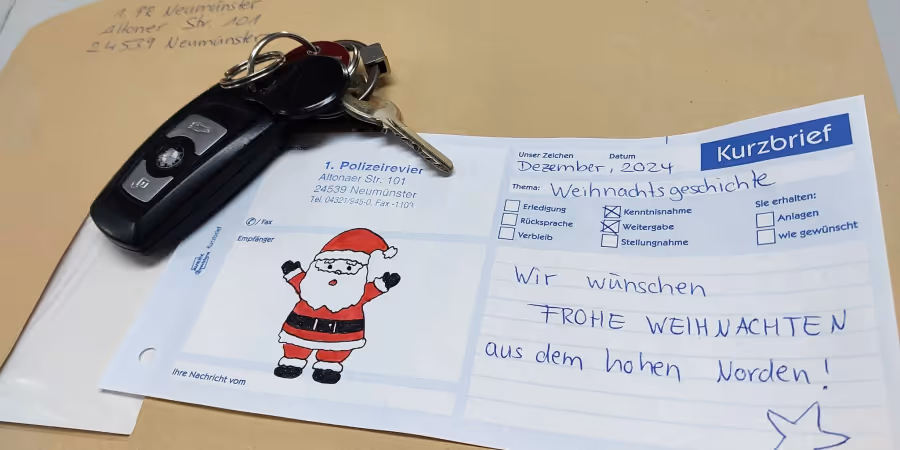 1. PR Neumünster
Altonaer Str. 101
24539 Neumünster
Kurzbrief
Unser Zeichen Datum
Dezember, 2024
Thema: Weihnachtsgeschichte
1. Polizeirevier
Altonaer Str. 101
24539 Neumünster
Tel. 04321/945-0, Fax -1101
Erledigung
Rücksprache
Verbleib
Kenntnisnahme
Weitergabe
Stellungnahme
Sie erhalten:
Anlagen
wie gewünscht
/ Fax
Empfänger
Kurzbrief
Wir wünschen
FROHE WEIHNACHTEN
aus dem hohen Norden!
Ihre Nachricht vom